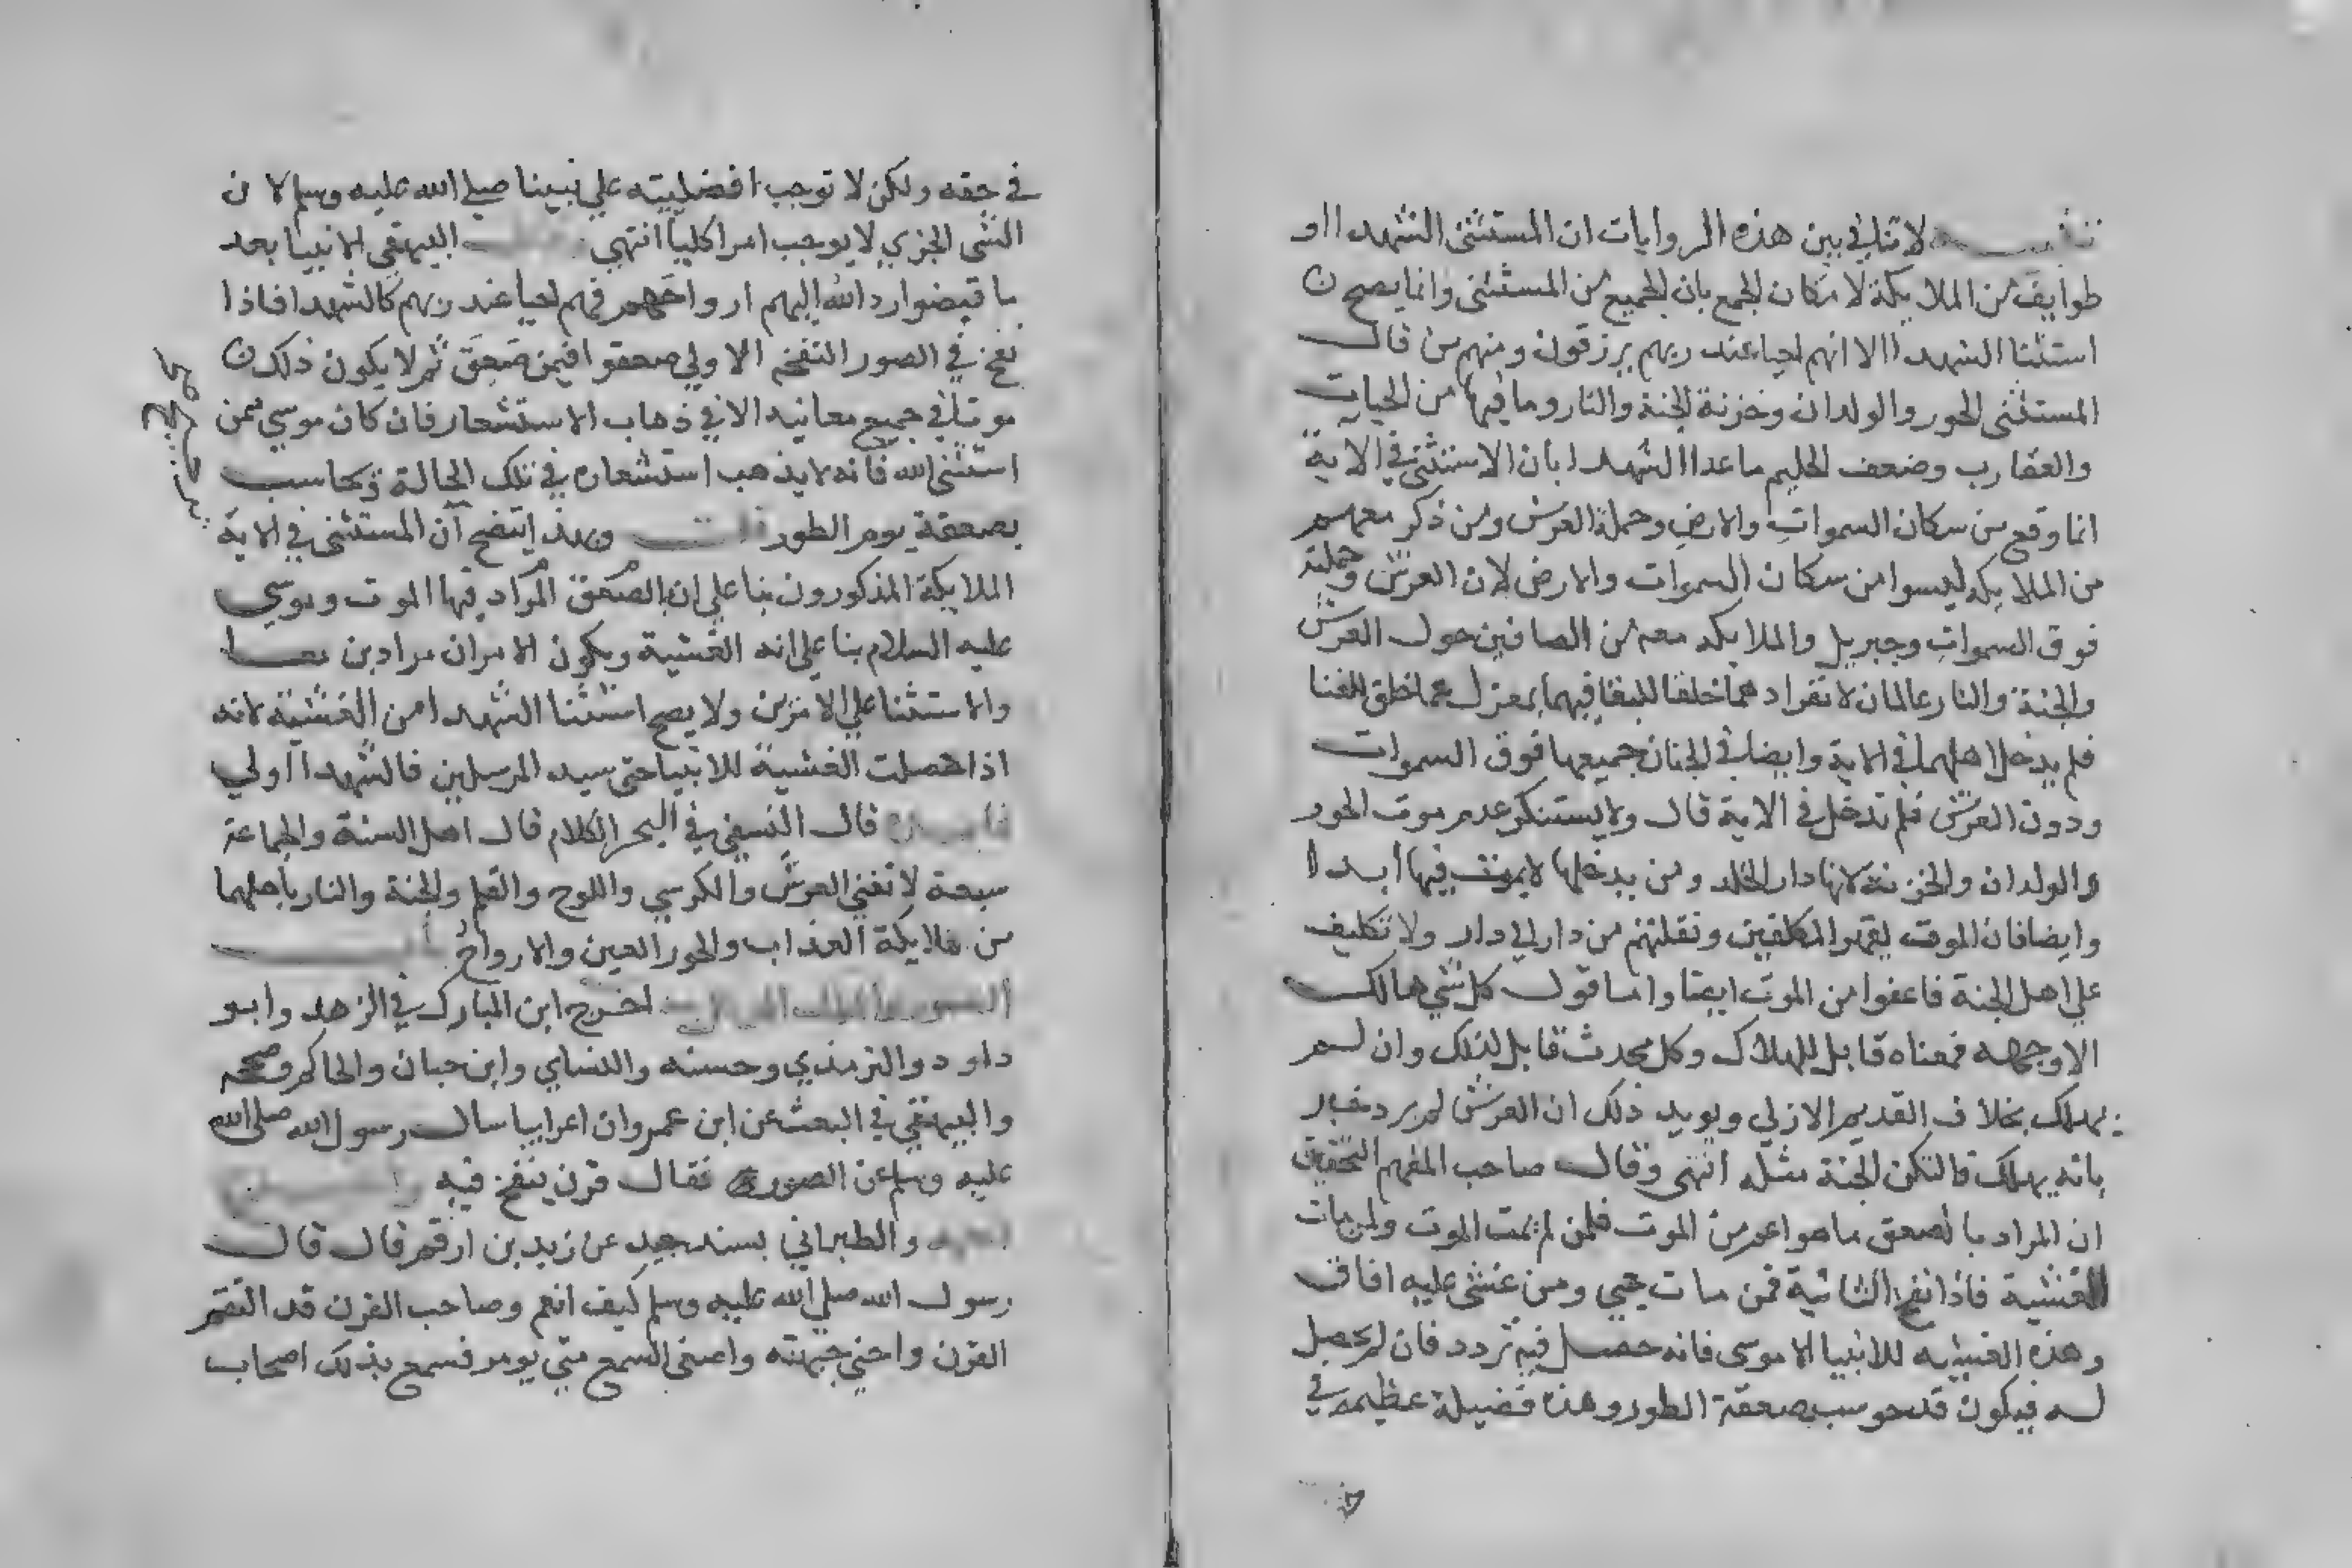 لا تنافي بين هذه الروايات ان المستثنى الشهدا او
طوايف من الملايكة لامكان الجمع بان الجميع من المستثنى وانما يصح ن
استثنا الشهدا الا انهم احيا عند ربهم يرزقون ومنهم من قال
المستثنى الحور والولدان وخزنة الجنة والنار وما فيها من الحيات
والعقارب وضعف الحليم ماعدا الشهدا بان الاستثنى في الاية
انما وقع من سكان السموات والارض وحملة العرش ومن ذكر معهم
من الملايكه ليسوا من سكان السموات والارض لان العرش وحملته
فوق السموات وجبريل والملايكه معه من الصافين حول العرش
والجنة والنار عالمان لانفراد هما خلقا للبقا فيهما بمعزل عما خلق للفنا
فلم يدخل اهلهما في الاية وايضا في الجنان جميعها فوق السموات
ودون العرش فلم تدخل في الاية قال ولا يستنكر عدم موت الحور
والولدان والخزنة لانها دار الخلد ومن يدخلها لا يموت فيها ابدا
وايضا فان الموت لقهر المكلفين ونقلتهم من دار الى دار ولا تكليف
على اهل الجنة فاعفوا من الموت ايضا واما قول كل شي هالك
الا وجهه فمعناه قابل للهلاك وكل محدث قابل لذلك وان لم
يهلك بخلاف القديم الازلي ويويد ذلك ان العرش لم يرد خبر
بانه يهلك فالتكن الجنة مثله انتهى وقال صاحب المفهم التحقيق
ان المراد بالصعق ما هو اعم من الموت فلمن لم يمت الموت ولمن مات
الغشية فاذا نفخ الثانية فمن مات حيي ومن غشى عليه افاق
وهذه الغشيه للانبيا الا موسى فانه حصل فيه تردد فان لم يحصل
له فيكون قد حوسب بصعقة الطور وهذه فضيلة عظيمه في
في حقه ولكن لا توجب افضليته على نبينا صلى الله عليه وسلم لان
الشى الجزي لا يوجب امرا كليا انتهى البيهقى الانبيا بعد
ما قبضوا رد الله اليهم ارواحهم فهم احيا عند ربهم كالشهدا فاذا
نفخ في الصور النفخه الاولى صعقوا فيمن صعق ثم لا يكون ذلك ن
موتا في جميع معانيه الا في ذهاب الاستشعار فان كان موسى ممن
استثنى الله فانه لا يذهب استشعاره في تلك الحالة ويحاسب
بصعقة يوم الطور قلت وبهذا يتضح ان المستثنى في الاية
الملايكة المذكورون بنا على ان الصعق المراد فيها الموت وموسى
عليه السلام بنا على انه الغشية ويكون الامران مرادين معا
والاستثنا على الامرين ولا يصح استثنا الشهدا من الغشية لانه
اذا حصلت الغشية للانبيا حتى سيد المرسلين فالشهدا اولي
قال النسفي في البحر الكلام قال اهل السنة والجماعة
سبعة لا تفنى العرش والكرسي واللوح والقلم والجنة والنار باهلهما
من ملايكة العذاب والحور العين والارواح باب
اخرج ابن المبارك في الزهد وابو
داود والترمذي وحسنه والنساي وابن حبان والحاكم وصححه
والبيهقي في البعث عن ابن عمرو ان اعرابيا سال رسول الله صلى الله
عليه وسلم عن الصور فقال قرن ينفخ فيه
والطبراني بسند جيد عن زيد بن ارقم قال قال
رسول الله صلى الله عليه وسلم كيف انعم وصاحب القرن قد التقم
القرن واحنى جبهته واصغى السمع متى يومر فسمع بذلك اصحاب